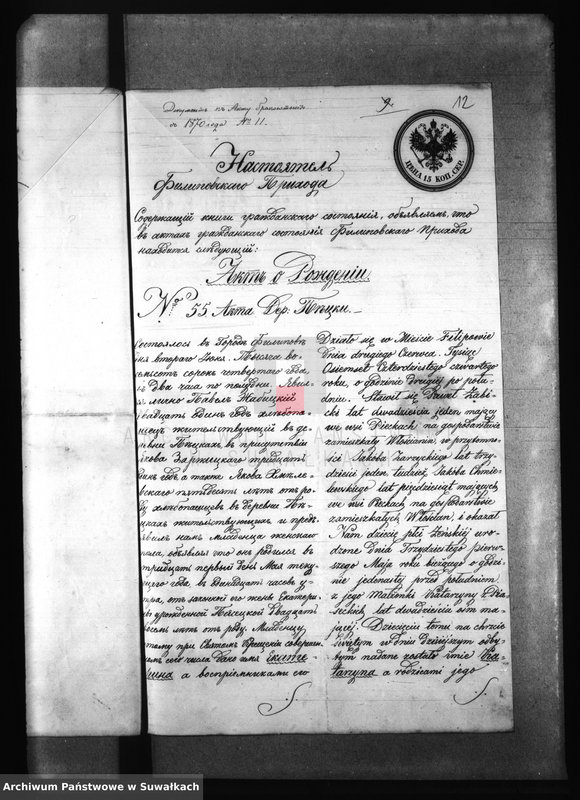 Документъ къ Акту бракосочет.
з 1870 года № 11.
12
ЦѢНА 15 КОП. СЕР.
Настоятель
Филиповскаго Прихода
Содержащій книги гражданскаго состоянія, объявляетъ, что
въ актахъ гражданскаго состоянія Филиповскаго Прихода
находится слѣдующій:
Актъ о Рожденіи.
№ 55 Акта Дер. Пѣцки.
состоялось въ Городѣ Филиповѣ
дня втораго Іюня, Тысяча во-
семьсотъ сорокъ четвертаго года,
въ два часа по полудни. Явил-
ся лично Павелъ Жабицкій
двадцать одинъ годъ хлѣбопа-
шецъ жительствующій въ де-
ревни Пѣцкахъ, въ присутствіи
Якова Заржецкаго тридцать
одинъ годъ, а также Якова Хмѣле-
вскаго пятьдесятъ лѣтъ отъ ро-
ду хлѣбопашцевъ въ деревни Пѣ-
цкахъ жительствующихъ и пред-
явилъ намъ младенца женскаго
пола, объявляя что онъ родился въ
тридцать первый день Мая теку-
щаго года, въ одинадцать часовъ у-
тра, отъ законной его жены Екатери-
ны урожденной Пѣсецкой двадцать
восемь лѣтъ отъ роду. Младенцу
этому при Святомъ Крещеніи совершен-
номъ сего числа дано имя Екате-
рина а воспріемниками его
Działo się w Mieście Filipowie
Dnia drugiego Czerwca, Tysiąc
Osiemset Czterdziestego czwartego
roku, o godzinie drugiej po połu-
dniu. Stawił się Paweł Żabi-
cki lat dwadzieścia jeden mający
we wsi Pieckach na gospodarstwie
zamieszkały Włościanin, w przytom-
ności Jakóba Zarzyckiego lat trzy-
dzieści jeden, tudzież Jakóba Chmie-
lewskiego lat pięćdziesiąt mających,
we wsi Pieckach na gospodarstwie
zamieszkałych Włościan, i okazał
Nam dziecię płci Żeńskiej uro-
dzone Dnia Trzydziestego pierw-
szego Maja roku bieżącego o godzi-
nie jedenastej przed południem,
z jego Małżonki Katarzyny
lat dwadzieścia ośm ma-
jącej. Dziecięciu temu na chrzcie
świętym w dniu dzisiejszym odby-
tym nadane zostało imie Ka-
tarzyna a rodzicami jego
Archiwum Państwowe w Suwałkach